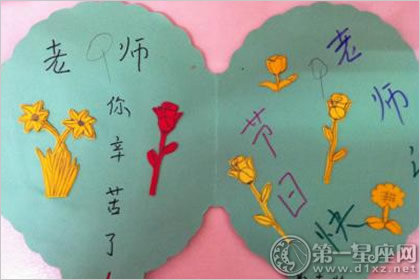 老师
你辛苦了
老师
节日
快
第一星座网
www.d1xz.net